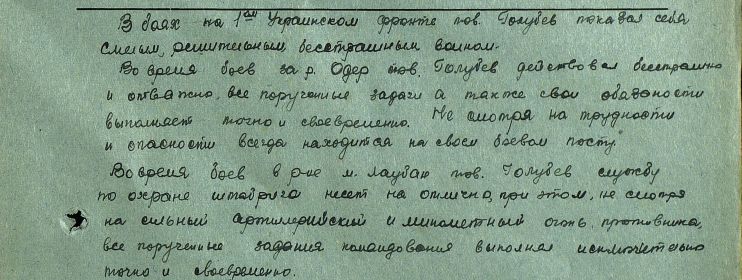 В боях на 1ом Украинском фронте тов. Голубев показал себя
смелым, решительным бесстрашным воином.
Во время боев за р. Одер тов. Голубев действовал бесстрашно
и отважно, все порученные задачи а также свои обязаности
выполняет точно и своевременно. Не смотря на трудности
и опасности всегда находится на своем боевом посту.
Во время боев в р-не м. Лаубан тов. Голубев службу
по охране штабрига несет на отлично, при этом, не смотря
на сильный артилерийский и минометный огонь, противника,
все порученные задания командования выполнял исключительно
точно и своевременно.